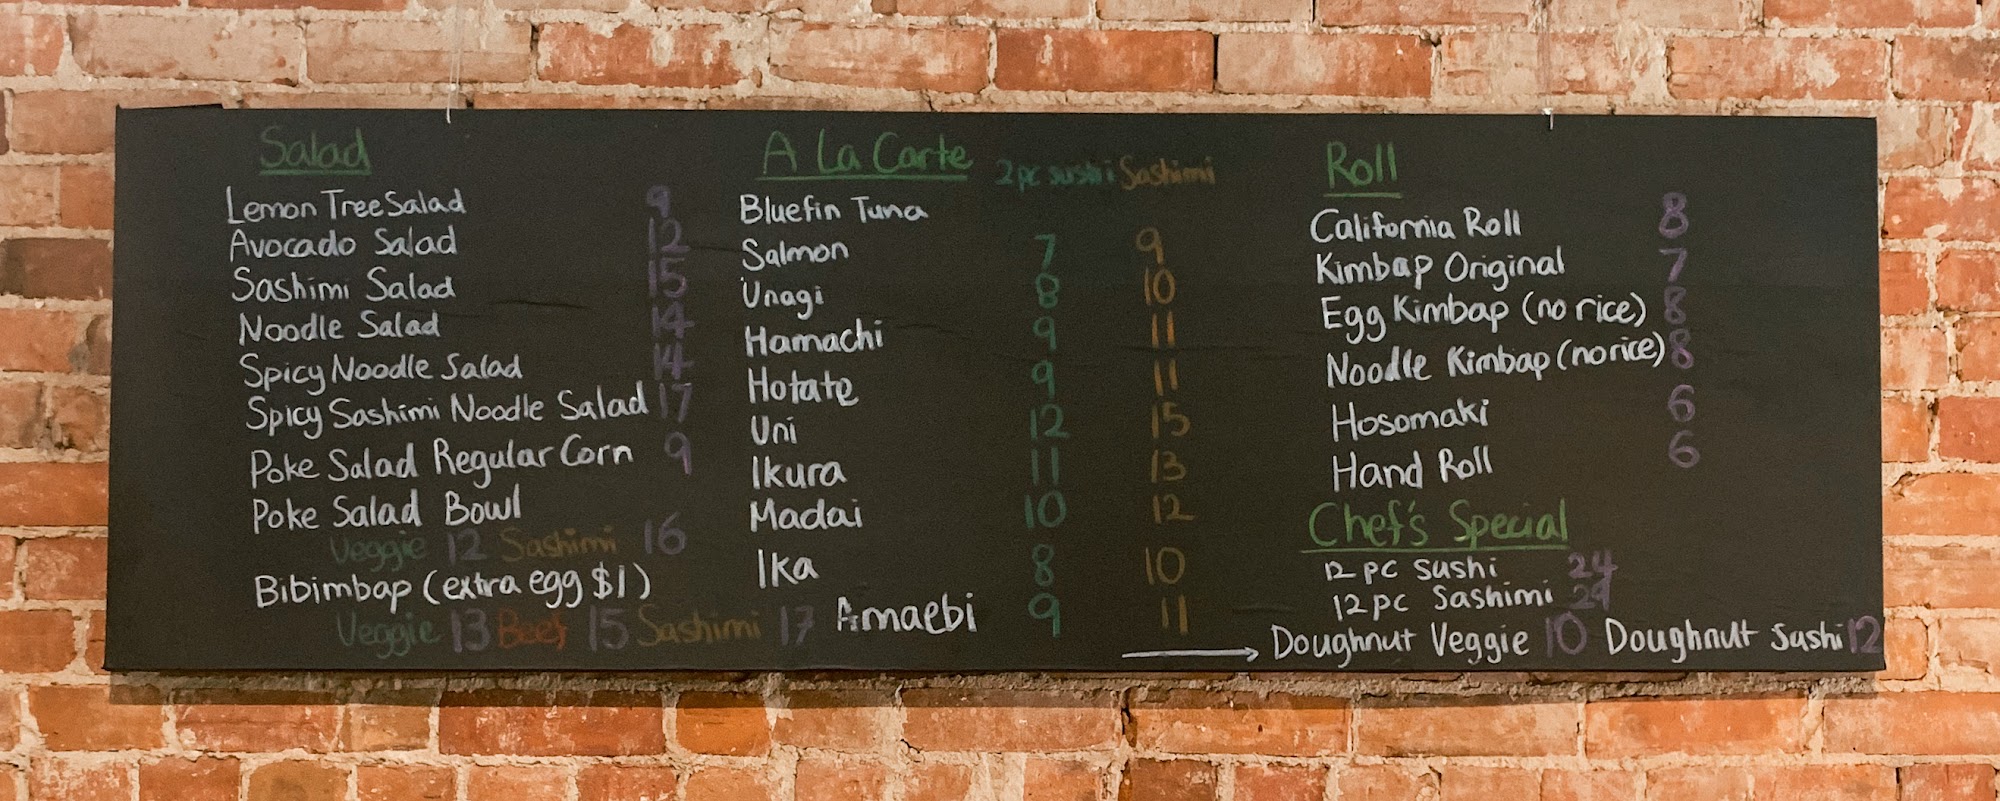 Salad
Lemon Tree Salad 9
Avocado Salad 12
Sashimi Salad 15
Noodle Salad 14
Spicy Noodle Salad 14
Spicy Sashimi Noodle Salad 17
Poke Salad Regular Corn 9
Poke Salad Bowl
Veggie 12 Sashimi 16
Bibimbap (extra egg $1)
Veggie 13 Beef 15 Sashimi 17
A La Carte 2pc sushi Sashimi
Bluefin Tuna
Salmon 7 9
Unagi 8 10
Hamachi 9 11
Hotate 9 11
Uni 12 15
Ikura 11 13
Madai 10 12
Ika 8 10
Amaebi 9 11
Roll
California Roll 8
Kimbap Original 7
Egg Kimbap (no rice) 8
Noodle Kimbap (no rice) 8
Hosomaki 6
Hand Roll 6
Chef's Special
12 pc sushi 24
12 pc Sashimi 29
Doughnut Veggie 10 Doughnut Sushi 12